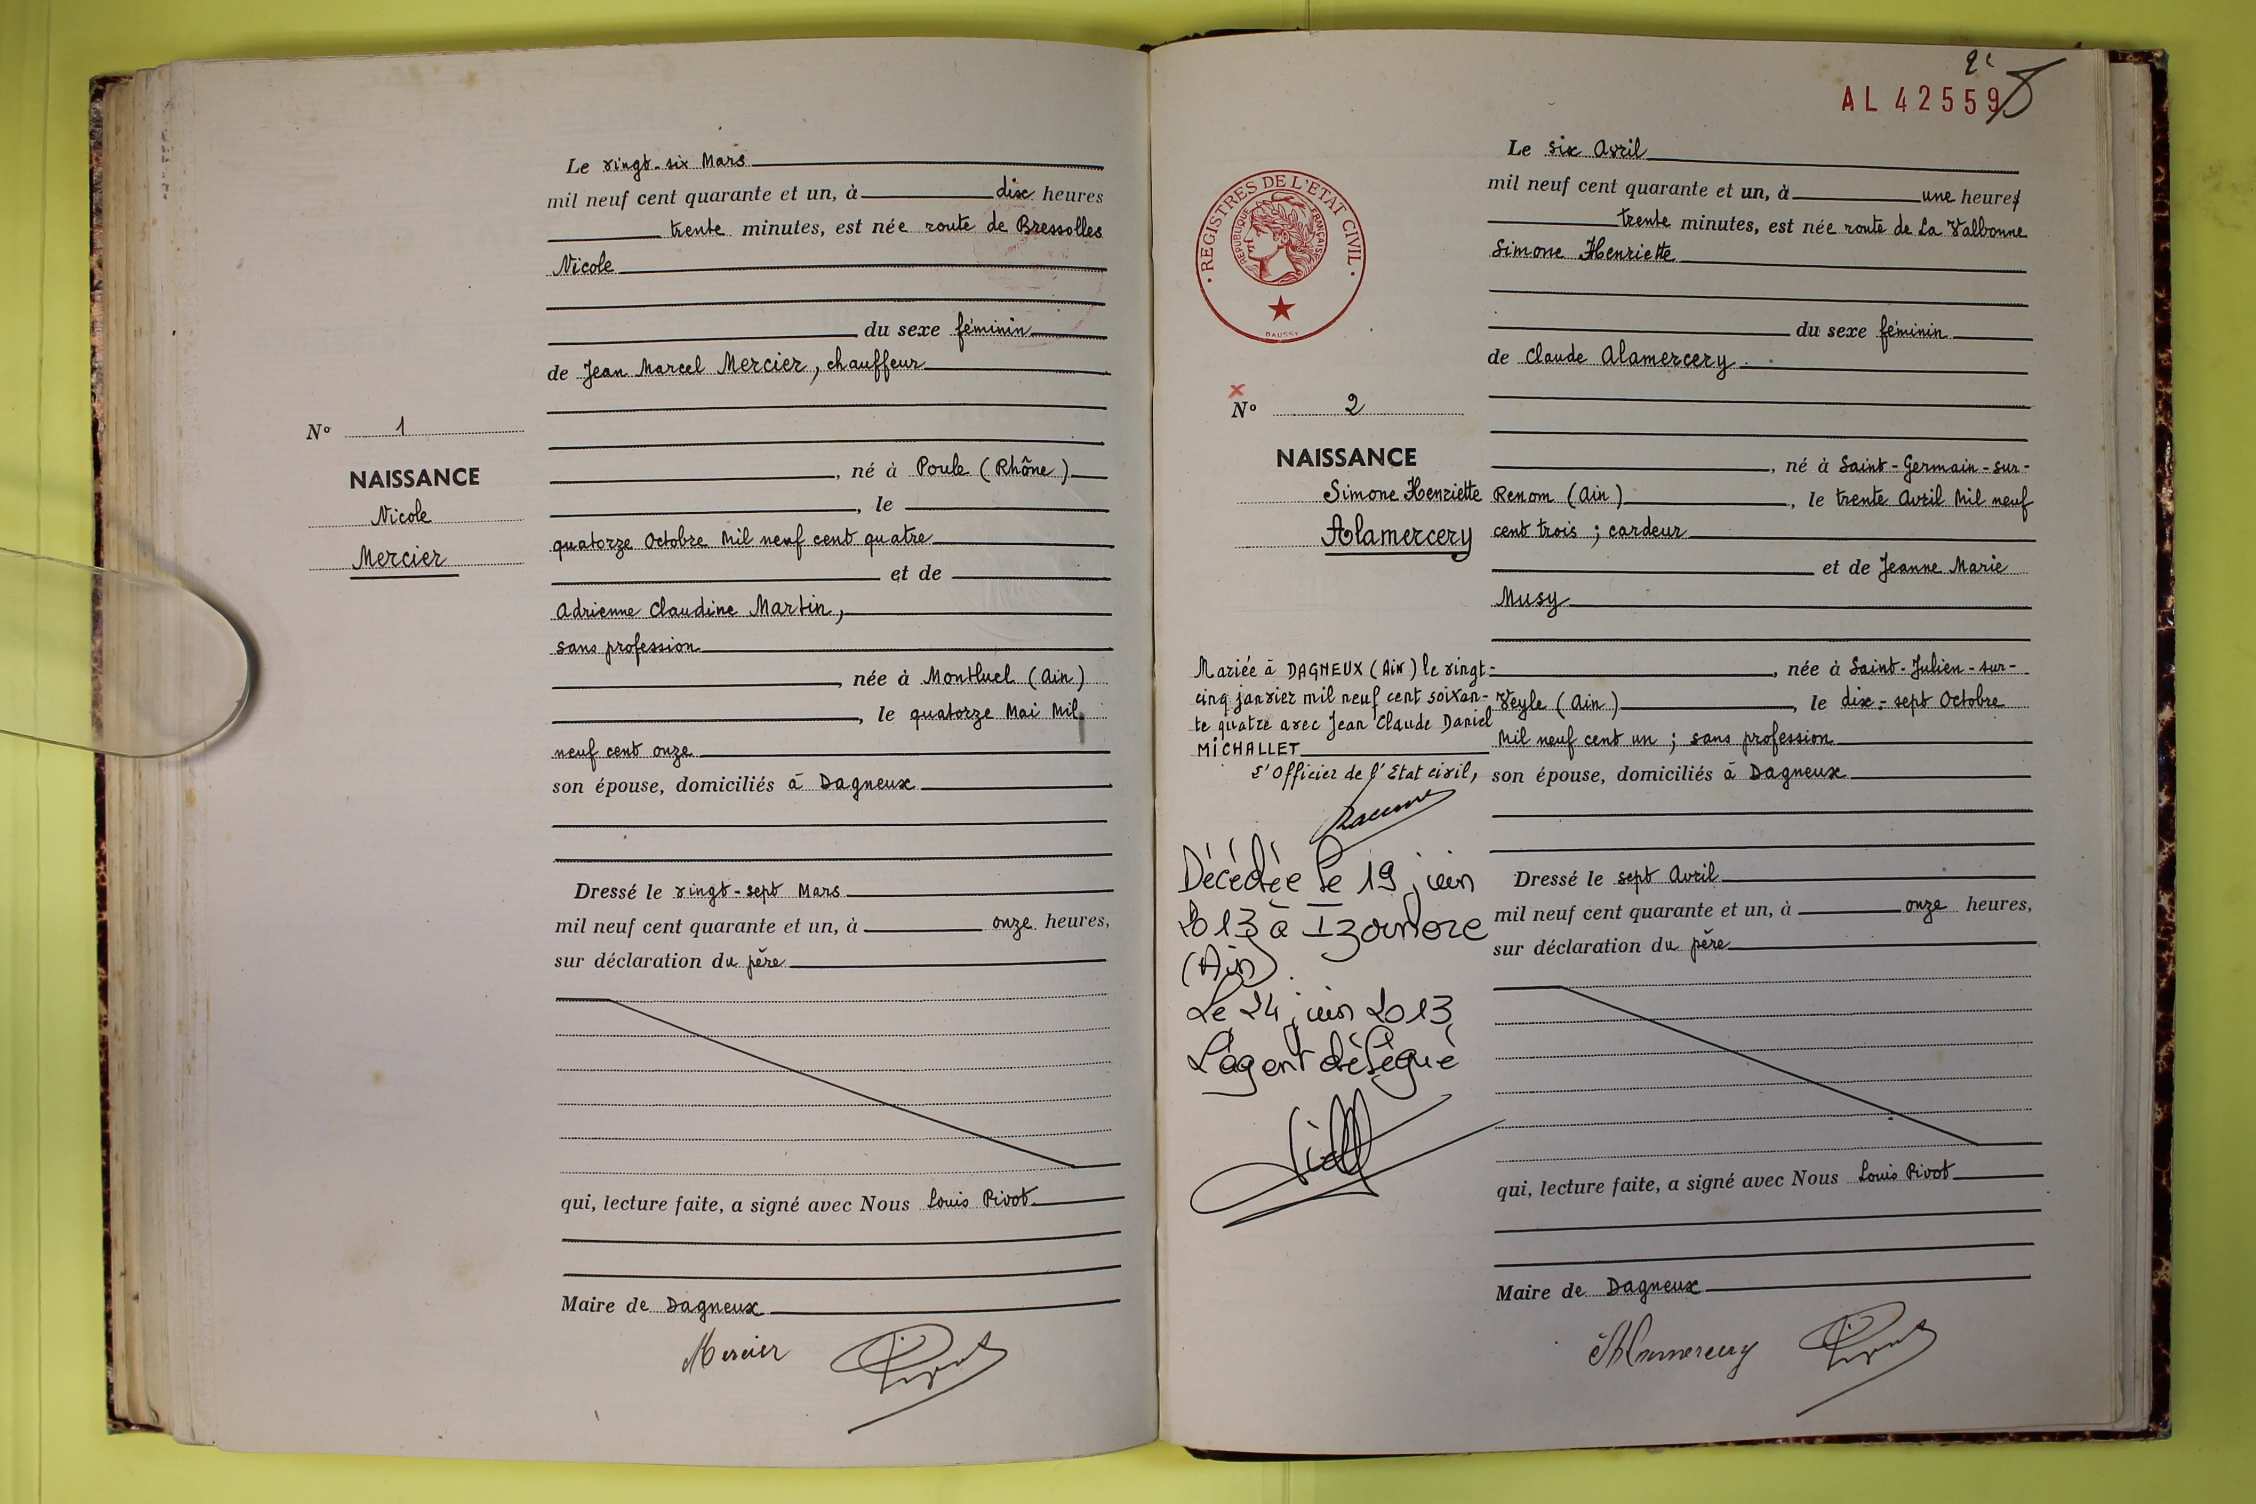 Le vingt-six Mars
mil neuf cent quarante et un, à dix heures
trente minutes, est née route de Bressolles
Nicole
du sexe féminin
de Jean Marcel Mercier, chauffeur
, né à Poule (Rhône)
, le
quatorze Octobre Mil neuf cent quatre
et de
Adrienne Claudine Martin,
sans profession
, née à Montluel (Ain)
, le quatorze Mai Mil
neuf cent onze
son épouse, domiciliés à Dagneux
Dressé le vingt-sept Mars
mil neuf cent quarante et un, à onze heures,
sur déclaration du père
qui, lecture faite, a signé avec Nous Louis Pivot
Maire de Dagneux
Mercier Pivot
No 1
NAISSANCE
Nicole
Mercier
2
AL 42559
REGISTRES DE L'ETAT CIVIL
REPUBLIQUE FRANÇAISE
DAUSSY
No 2
NAISSANCE
Simone Henriette
Alamercery
Mariée à DAGNEUX (Ain) le vingt-
cinq janvier mil neuf cent soixan-
te quatre avec Jean Claude Daniel
MICHALLET
L'Officier de l'Etat civil,
Décédée le 19 juin
2013 à Izernore
(Ain).
Le 24 juin 2013
L'agent délégué
Le six Avril
mil neuf cent quarante et un, à une heure
trente minutes, est née route de La Valbonne
Simone Henriette
du sexe féminin
de Claude Alamercery
, né à Saint-Germain-sur-
Renom (Ain), le trente Avril Mil neuf
cent trois ; cardeur
et de Jeanne Marie
Musy
, née à Saint-Julien-sur-
Veyle (Ain), le dix-sept Octobre
Mil neuf cent un ; sans profession
son épouse, domiciliés à Dagneux
Dressé le sept Avril
mil neuf cent quarante et un, à onze heures,
sur déclaration du père
qui, lecture faite, a signé avec Nous Louis Pivot
Maire de Dagneux
Alamercery Pivot